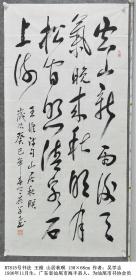 空山新雨後天
氣晚來秋明月
松間照清泉石
上流
王維詩句山居秋暝
歲次癸巳年
B7815号书法 王维 山居秋暝 138×68cm 作者：吴
1936年11月生，广东省汕尾市海丰县人，为汕尾市书协会员